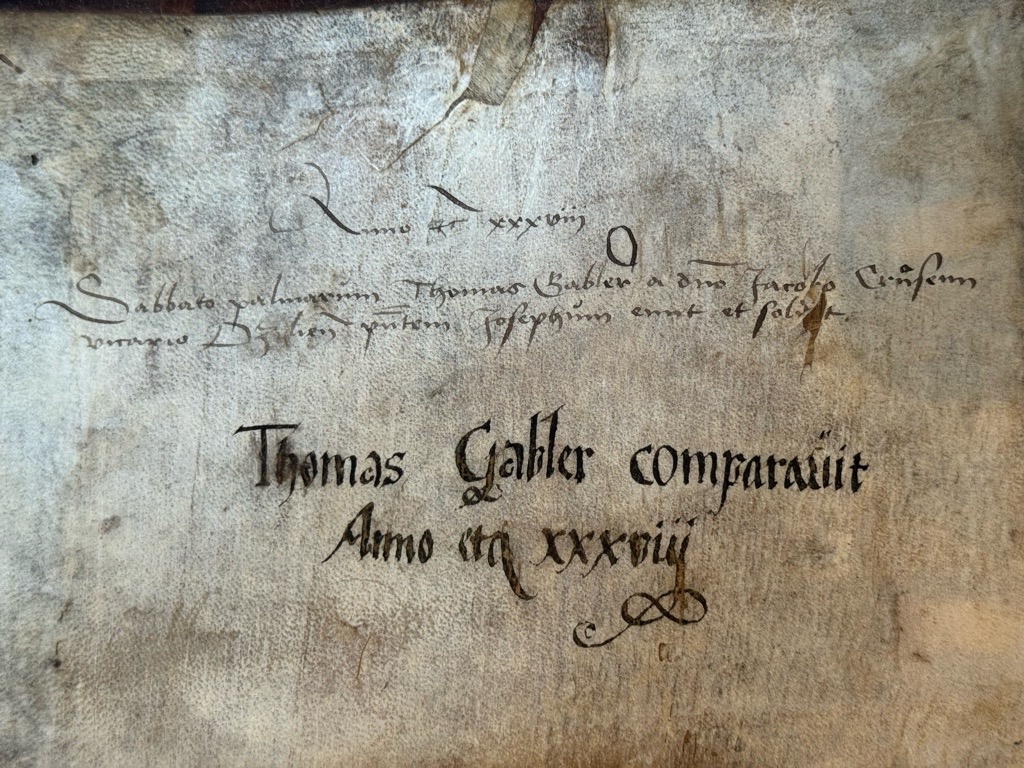 Anno etc xxxviij
Sabbato palmarum Thomas Gabler a dno Jacobo
vicario pntem Josephum emit et soldit.
Thomas Gabler comparauit
Anno etc xxxviij